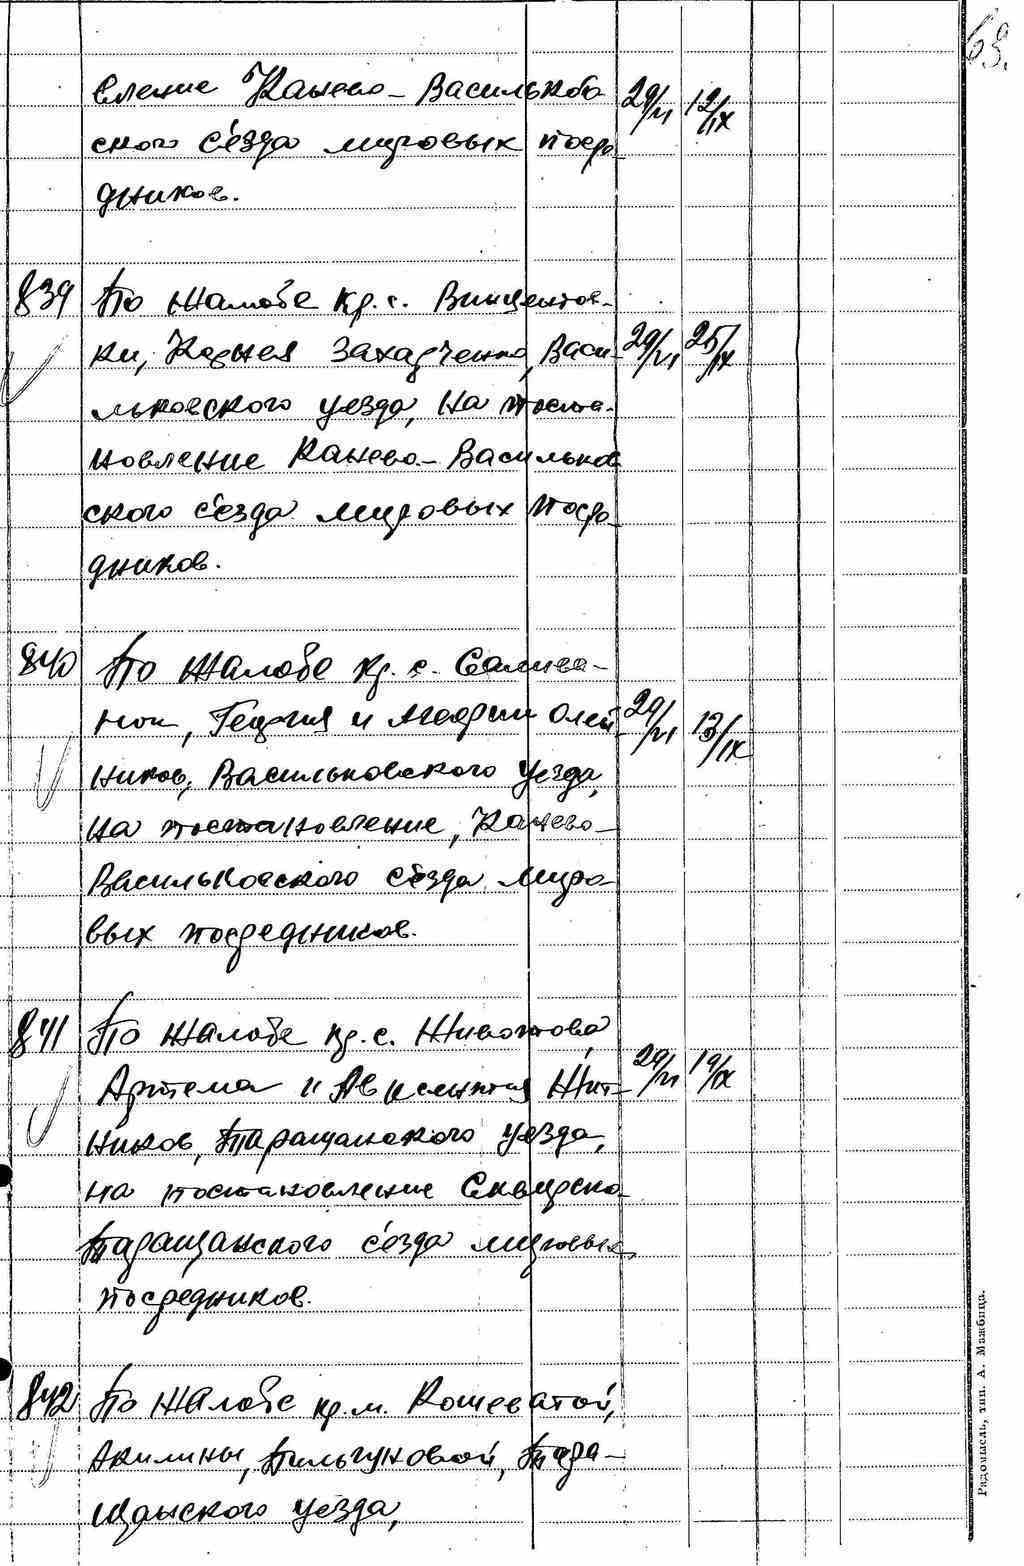 69.
вление Канево-Васильков
ского съезда мировых посре
дников. 29/VI 12/IX
839 По жалобе кр. с. Винцентов-
ки, Корнея Захарченко, Васи- 29/VI 25/IX
льковского уезда, на поста-
новление Канево-Васильков
ского съезда мировых посре
дников.
840 По жалобе кр. с. Селива-
нок, Георгия и Олей 29/VI 13/IX
ников, Васильковского уезда,
на постановление, Канево-
Васильковского съезда миро-
вых посредников.
841 По жалобе кр. с. Животова
Артема и Авксентия Жит- 29/VI 19/IX
ников, Таращанского уезда,
на постановление Сквирско-
Таращанского съезда мировых
посредников.
842 По жалобе кр. м. Кошеватой,
Акилины, Пильгуновой, Тара-
щанского уезда,
Радомысль, тип. А. Мажбица.